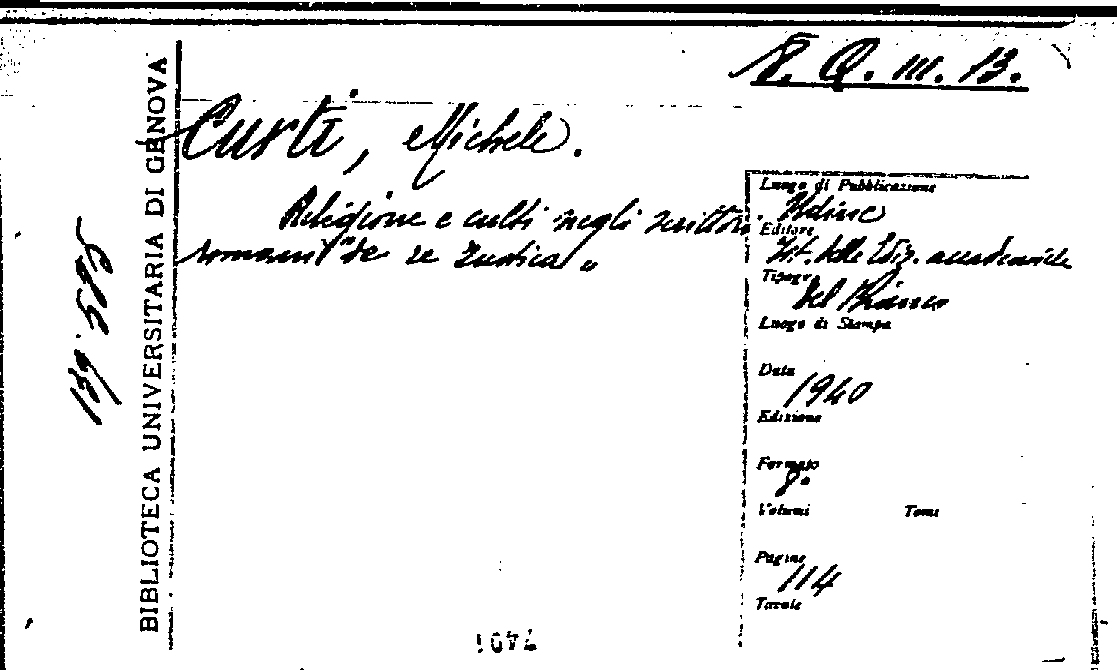 8. Q. III. 13.
Curti, Michele.
Religione e culti negli scrittori
romani "de re rustica"
BIBLIOTECA UNIVERSITARIA DI GENOVA
Luogo di Pubblicazione
Udine
Editore
Ist. delle Ediz. accademiche
Tipogr
Del Bianco
Luogo di Stampa
Data
1940
Edizione
Formato
8°
Volumi Tomi
Pagine
114
Tavole